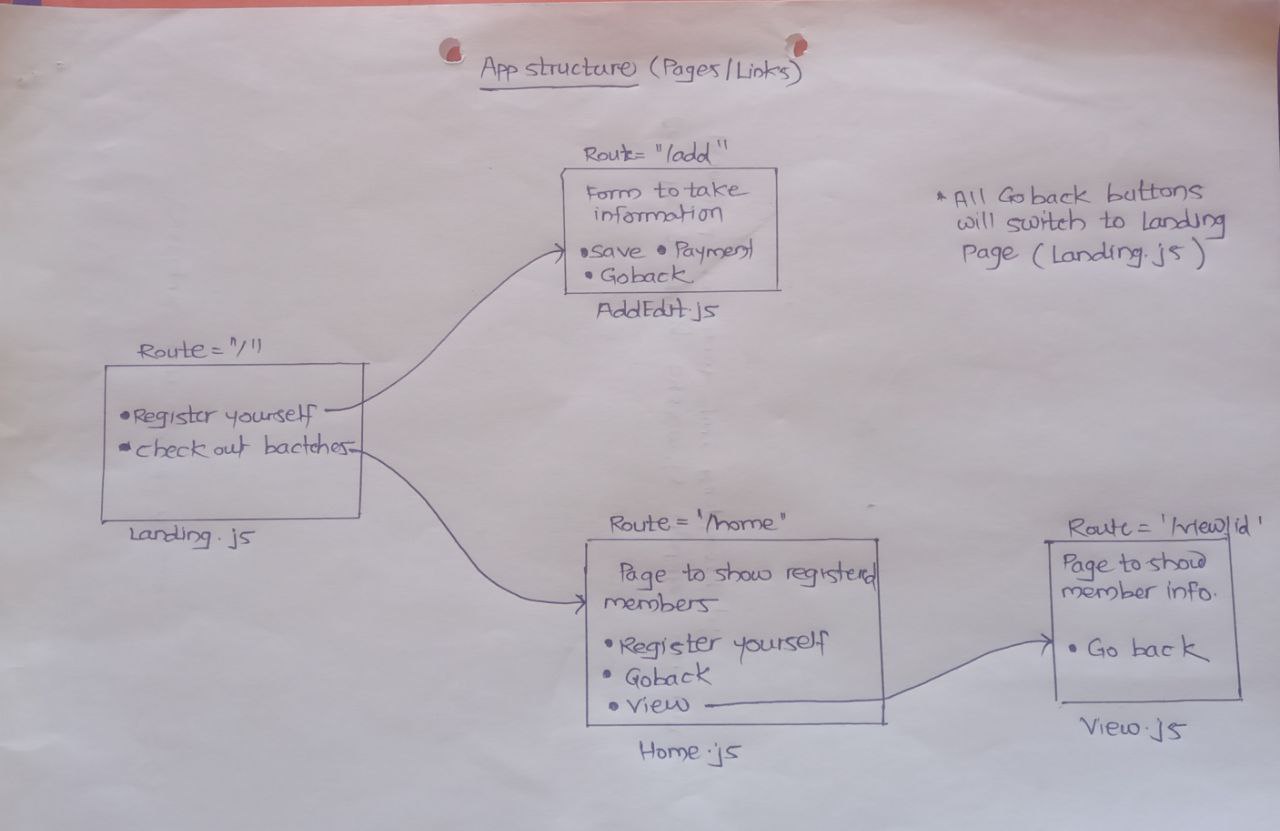 App structure (Pages/Links)
Route= "/add"
Form to take
information
• Save • Payment
• Goback
AddEdit.js
* All Goback buttons
will switch to Landing
Page (Landing.js)
Route= "/"
• Register yourself
• Check out bactches
Landing.js
Route = '/home"
Page to show registerd
members
• Register yourself
• Goback
• View
Home.js
Route = '/view/id'
Page to show
member info.
• Go back
View.js